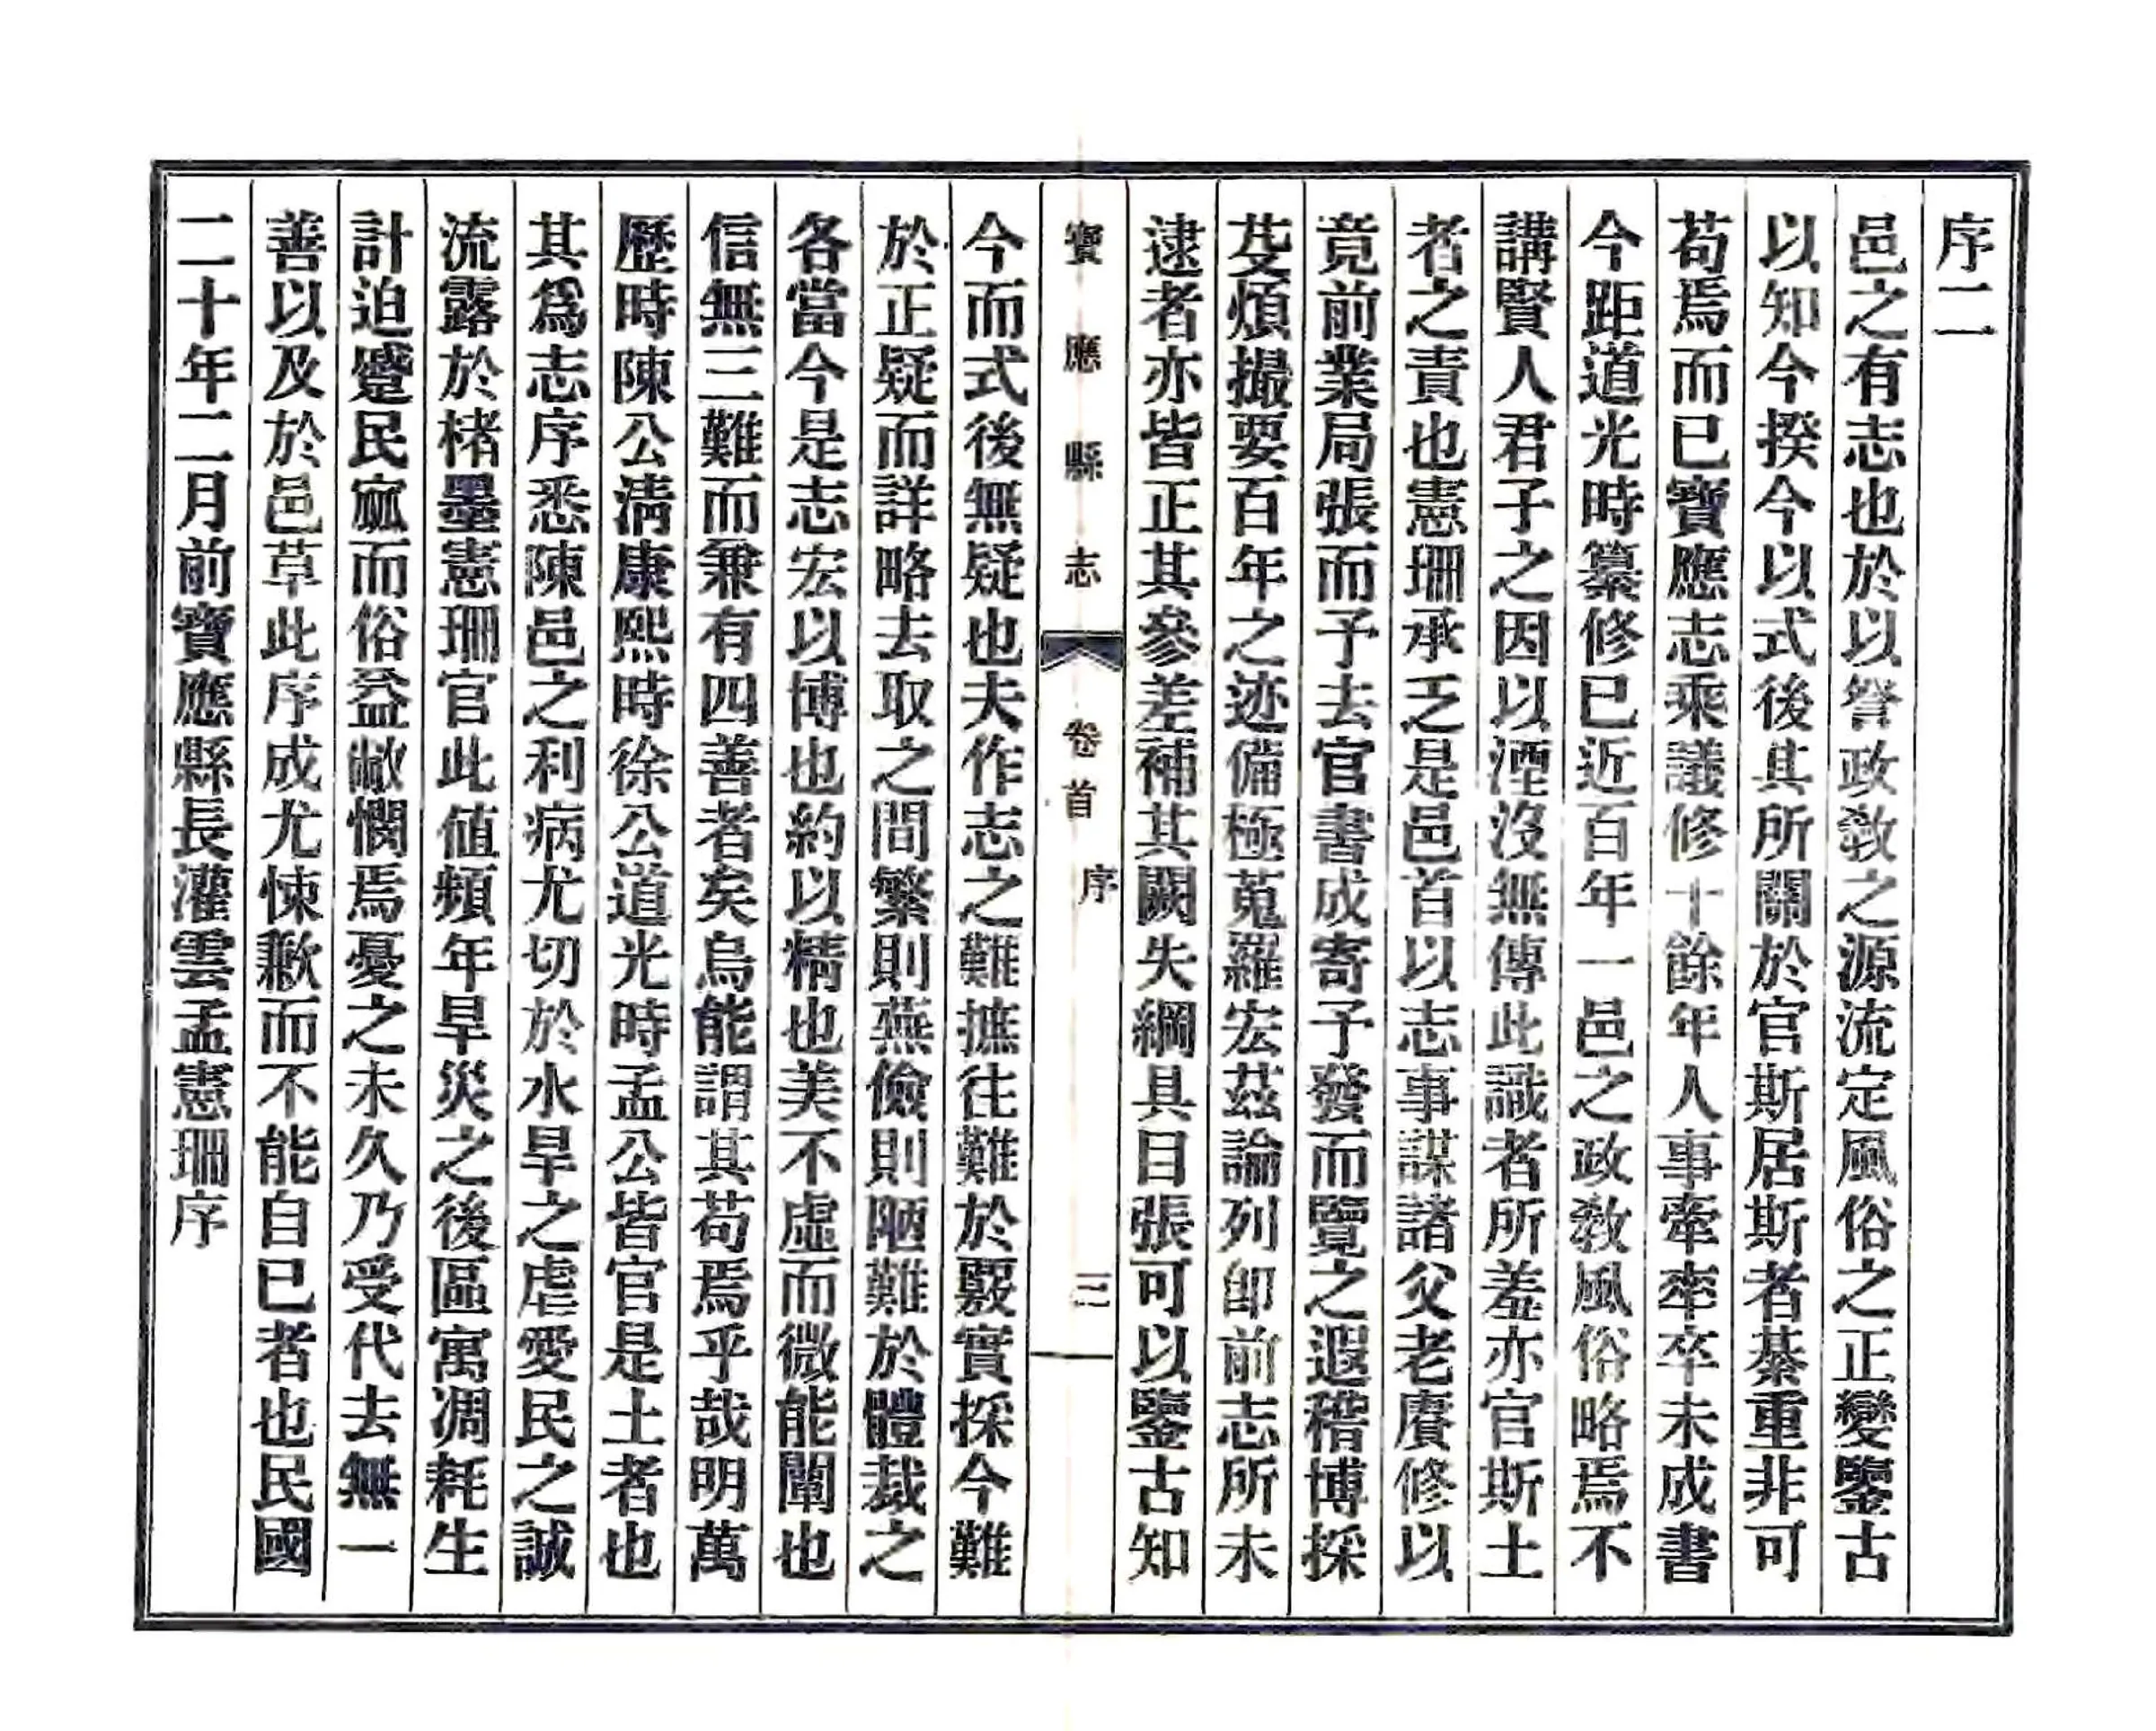 序二
邑之有志也於以詧政敎之源流定風俗之正變鑒古
以知今揆今以式後其所關於官斯居斯者綦重非可
苟焉而已寶應志乘議修十餘年人事牽率卒未成書
今距道光時纂修已近百年一邑之政敎風俗略焉不
講賢人君子之因以湮沒無傳此識者所羞亦官斯土
者之責也憲珊承乏是邑首以志事謀諸父老賡修以
竟前業局張而予去官書成寄予發而覽之遐稽博採
芟煩撮要百年之迹備極蒐羅宏茲論列卽前志所未
逮者亦皆正其參差補其闕失綱具目張可以鑒古知
寶應縣志 卷首 序 三
今而式後無疑也夫作志之難摭往難於覈實採今難
於正疑而詳略去取之間繁則蕪儉則陋難於體裁之
各當今是志宏以博也約以精也美不虛而微能闡也
信無三難而兼有四善者矣烏能謂其苟焉乎哉明萬
歷時陳公淸康熙時徐公道光時孟公皆官是土者也
其爲志序悉陳邑之利病尤切於水旱之虐愛民之誠
流露於楮墨憲珊官此値頻年旱災之後區寓凋耗生
計迫蹙民窳而俗益敝憫焉憂之未久乃受代去無一
善以及於邑草此序成尤悚歉而不能自已者也民國
二十年二月前寶應縣長灌雲孟憲珊序